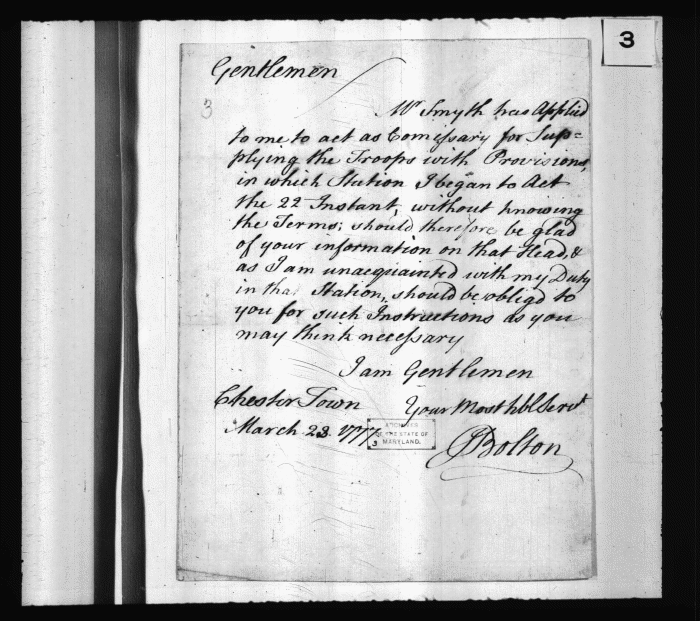 3
Gentlemen
3
Mr Smyth has Applied
to me to act as Comissary for Sup=
plying the Troops with Provisions,
in which Station I began to Act
the 22 Instant, without knowing
the Terms; should therefore be glad
of your information on that Head, &
as I am unacquainted with my Duty
in that Station, should be obligd to
you for such Instructions as you
may think necessary
I am Gentlemen
Chester Town Your Most hbl Servt
March 23. 1777 Bolton
ARCHIVES
OF THE STATE OF
MARYLAND.